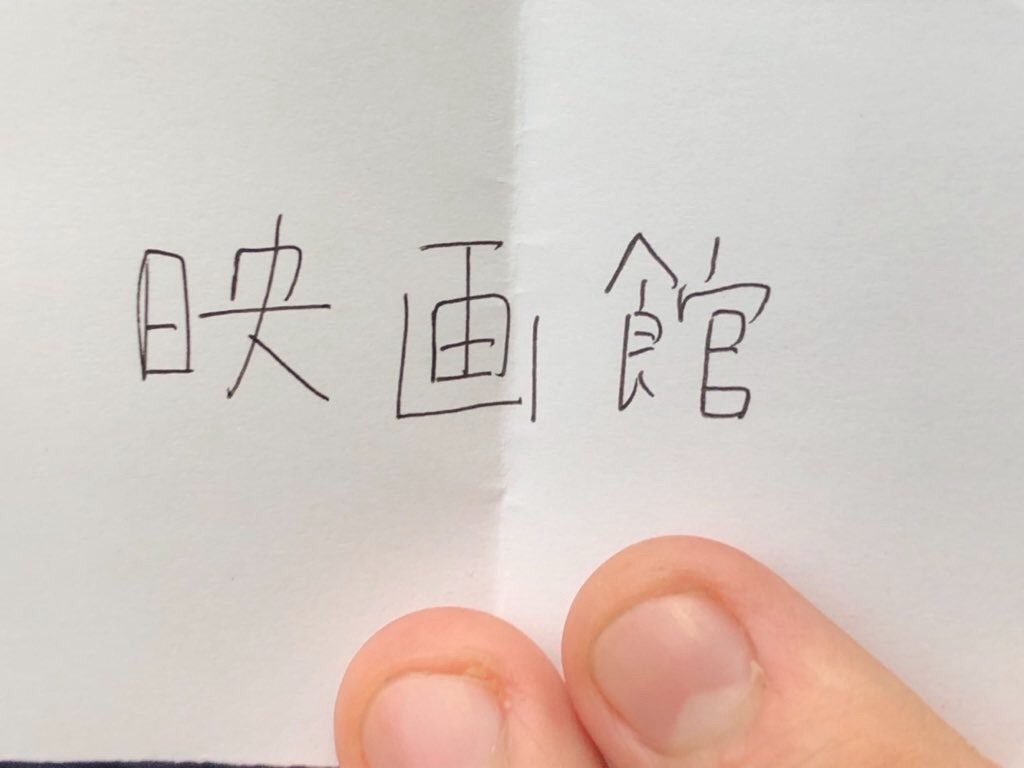 映画館